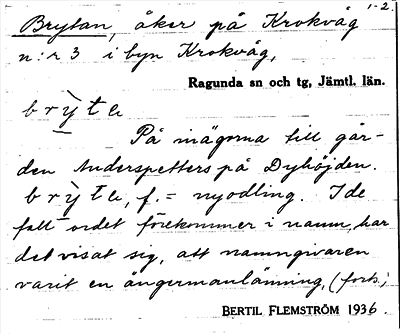 1-2.
Brytan, åker på Krokvåg
n:r 3 i byn Krokvåg,
Ragunda sn och tg, Jämtl. län.
brỳta
På mägorna till går-
den Anderspetters på Dyhöjden.
brỳta, f. = nyodling. I de
fall ordet förekommer i namn, har
det visat sig, att namngivaren
varit en ångermanlänning, (forts.)
BERTIL FLEMSTRÖM 1936.